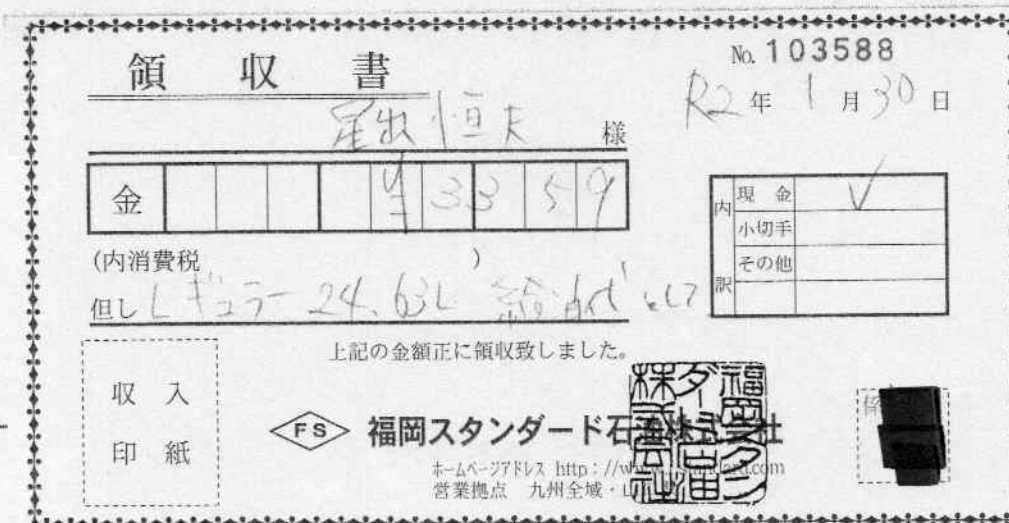 領 収 書
No. 103588
R2 年 1 月 30 日
恒夫 様
金 ¥3359
内訳
現 金 ✓
小切手
その他
(内消費税 )
但し レギュラー 24.63L 給油代として
上記の金額正に領収致しました。
収 入
印 紙
FS 福岡スタンダード石油株式会社
ホームページアドレス http://www
営業拠点 九州全域・山